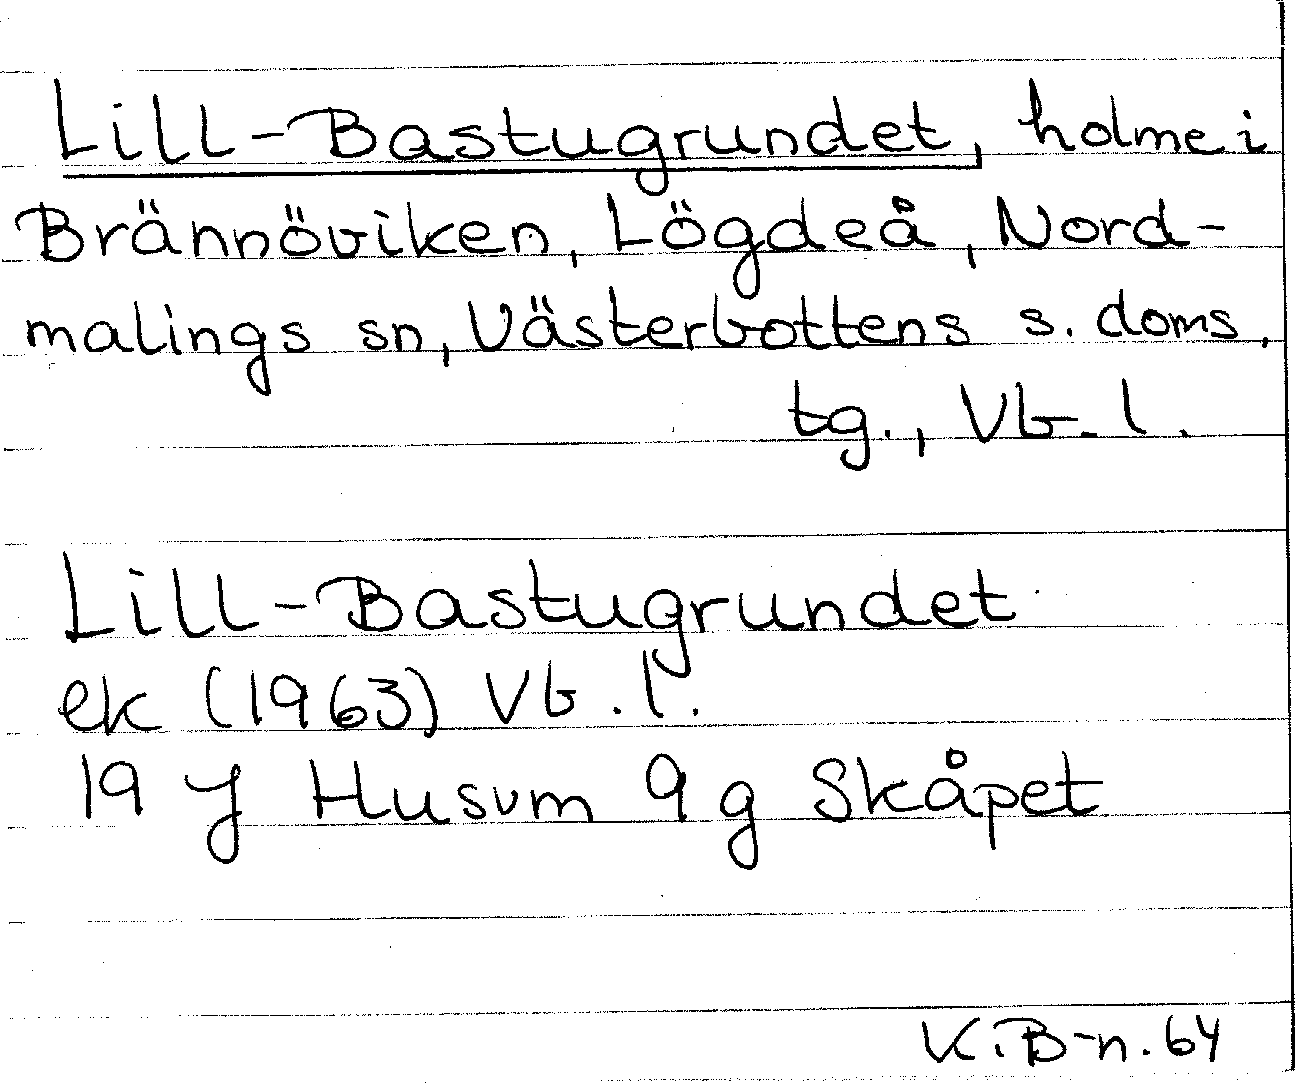 Lill-Bastugrundet, holme i
Brännöviken, Lögdeå, Nord-
malings sn, Västerbottens s. doms,
tg., Vb. l.
Lill-Bastugrundet
ek (1963) Vb. l.
19 J Husum 9 g Skåpet
K. B-n. 64